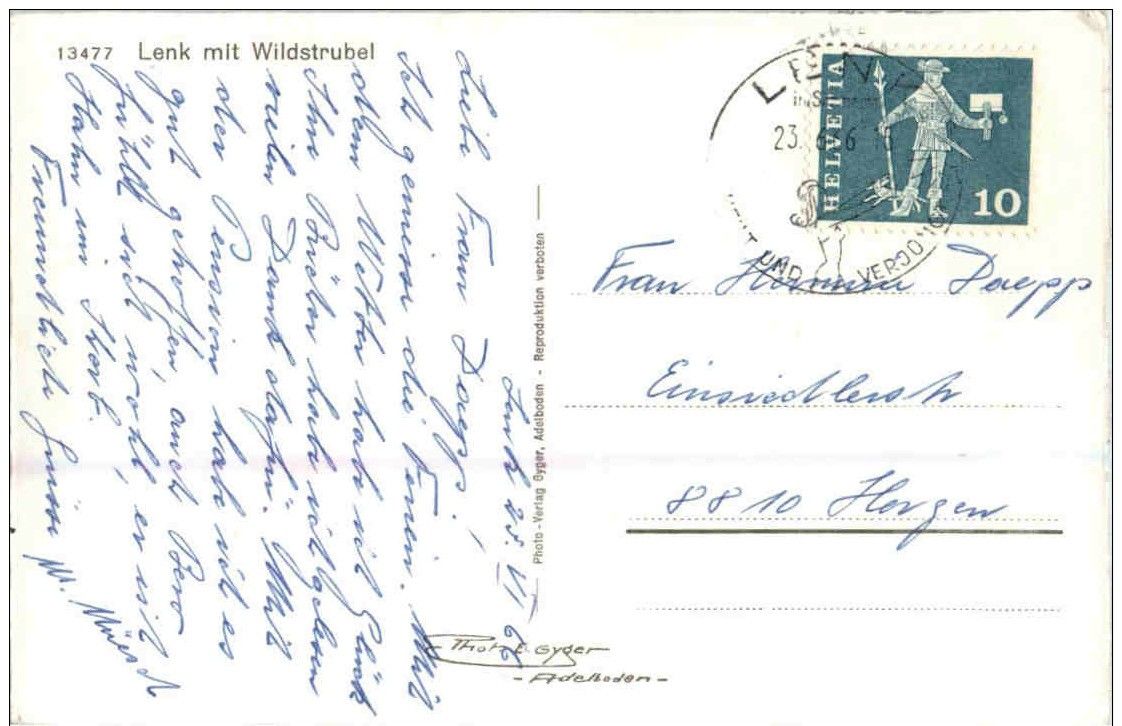 13477 Lenk mit Wildstrubel
Lenk 25. VI 68
Liebe Frau Daepp!
Ich geniesse die Ferien. Mit
dem Wetter habe ich Glück
Ihre Bücher habe ich gelesen
vielen Dank dafür. Mit
der Pension habe ich es
gut getroffen, auch Bero
fühlt sich wohl, er ist
Hahn im Korb.
Freundliche Grüsse
M.
Photo-Verlag Gyger, Adelboden - Reproduktion verboten
HELVETIA
10
LENK
23. 6
UND
Frau Hermine Daepp
Einsiedlerstr
8810 Horgen
Photo E. Gyger
- Adelboden -